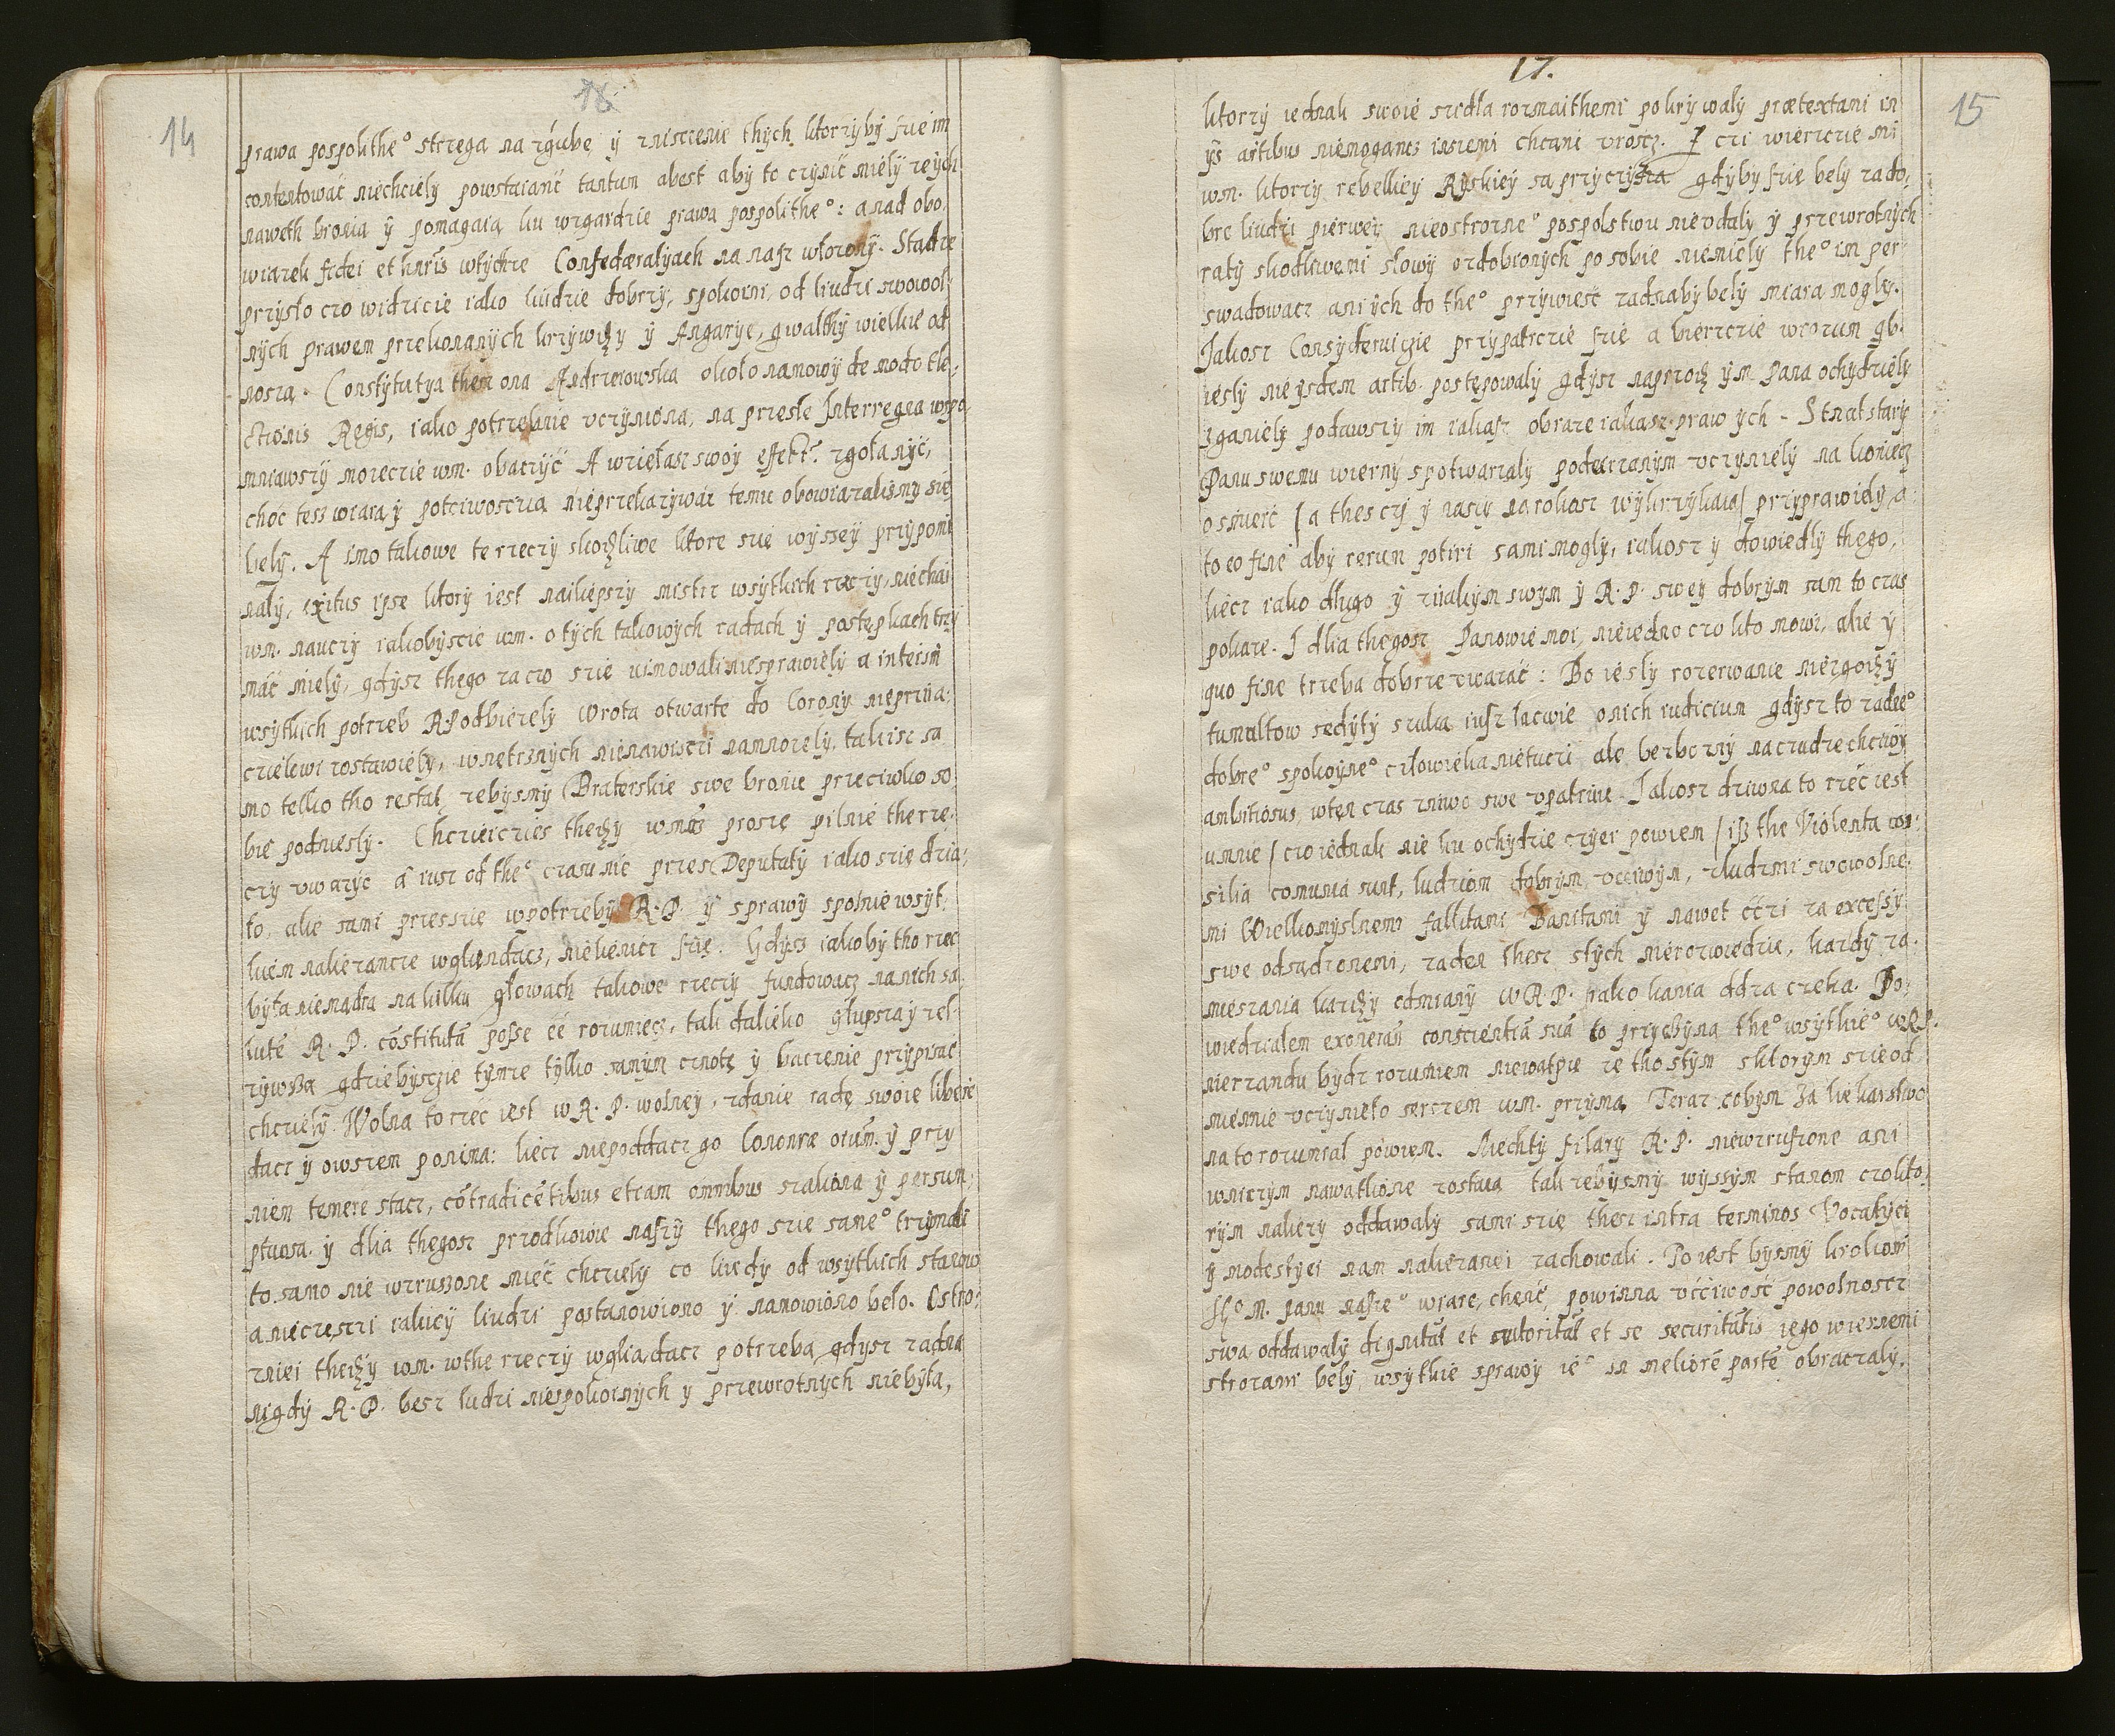 14
16
prawa pospolithe° strzega na zgubę ÿ zniscenie thÿch ktorzÿbÿ sie im
contentowáć niechciełÿ powstaianć tantum abest abÿ to czÿnić mielÿ ze ÿch
naweth bronia ÿ pomagaią ku wzgardzie prawa pospolithe°: a nad obo
wiazek fidei et hnris wtÿchze Confœderatÿach na nasz wlozonÿ. Stądze
przÿsło czo widzicie iako ludzie dobrzÿ, spokoini, od liudzi swowol
nÿch prawem przekonanÿch krzÿwdÿ ÿ Angarÿe, gwałthÿ wielkie od
nosza. Constÿtutÿa thesz ona Andrzeowska około namowÿ de modo ele
ctionis Regis, iako potrzebnie vczÿniona, na przesłe Interregna wspo
mniawszÿ mozecie wm. obaczÿć A wzięłasz swoÿ effekt. zgoła nÿć,
choć tesz wiarą ÿ potciwoscią nieprzekazÿwać temu obowiazalismÿ sie
belÿ. A ono takowe te rzeczÿ skodliwe ktore sie wÿsseÿ przÿpomi
nałÿ, exitus ipse ktorÿ iest nailiepszÿ mistrz wsÿtkich rzeczÿ, niechai
wm. nauczÿ iakobÿscie wm. o tÿch takowÿch radach ÿ postępkach trzÿ
máć mielÿ, gdÿsz thego za czo sie uimowali niesprawielÿ a interim
wsÿtkich potrzeb R.P. odbierelÿ wrota otwarte do Coronÿ nieprzÿia
cielewi zostawielÿ, wnętrznÿch nienawisci namnozelÿ, takisz sa
mo telko tho restat zebÿsmÿ Braterskie swe bronie przeciwko so
bie podniesłÿ. Chcieicies thedÿ wmcs proszę pilnie the rze
czÿ vwazÿc á iusz od the° czasu nie przes Deputatÿ iako sie dzia
to, alie sami przessie wpotrzebÿ R.P. ÿ sprawÿ spolnie wsÿt
kiem nalezancze wglundacz, nielienicz sie. Gdÿsz iakobÿ tho rzec
bÿta niemądra na kilku głowach takowe rzeczÿ fundowacz na nich sa
lutē R.P. cōstitutā poſse eē rozumiecz, tak dalieko głupsza ÿ zel
zÿwsza gdziebÿsczie tÿmze tÿlko samÿm cnotę ÿ baczenie przÿpisac
chcielÿ. Wolna to rzeć iest w R.P. wolneÿ, zdanie radę swoie libere
dacz ÿ owszem ponina: liecz niepoddacz go Censuræ oium. ÿ przÿ
niem temere stacz, cōtradicētibus etiam omnibus szalona ÿ persum
ptuosa. ÿ dlia thegosz przodkowie naszÿ thego sie same° trzÿmali
to samo nie wzruszone mieć chcielÿ co kiedÿ od wsÿtkich stanow
a nieczesci iakieÿ liudzi postanowiono ÿ namowiono beło. Ostro
zniei thedÿ wm. wthe rzeczÿ wgliądacz potrzeba gdÿsz zadna
nigdÿ R.P. besz ludzi niespokoinÿch ÿ przewrotnÿch niebÿła,
17.
15
ktorzÿ iednak swoie sidla rozmaithemi pokrÿwalÿ prœtextami in
ÿs artibus niemogancz inszemi chcani vrosć. I czi wierzcie mi
wm. ktorzÿ rebellieÿ Rÿskieÿ sa przÿczÿna gdÿbÿ sie belÿ zado
bre liudzi pierweÿ nieostrozne° pospolstwu nieudalÿ ÿ przewrotnÿch
ratÿ skodliwemi słowÿ ozdobionÿch po sobie niemielÿ the° im per
swadowacz ani ÿch do the° przÿwiesć zadnabÿ belÿ miara moglÿ.
Jakosz Consÿderuiczie przÿpatrzcie sie a bierzcie wrozum gb.
ieslÿ nie ÿsdem artib. postępowalÿ gdÿsz naprzod ÿm. Pana ochÿdzielÿ
zganielÿ podawszÿ im iakasz obraze iakasz praw ÿch - Senat starÿ
Panu swemu wiernÿ spotwarzalÿ podeirzanÿm vczÿnielÿ na koniecz
o smierć [a thes czÿ ÿ naszÿ na rokosz wÿkrzÿkaia] przÿprawielÿ, a
to eo fine abÿ rerum potiri sami moglÿ, iakosz ÿ dowiedlÿ thego,
liecz iako długo ÿ ziakÿm swÿm ÿ R.P. sweÿ dobrÿm sam to czas
pokaze. I dlia thegosz Panowie moi, nieiedno czo kto mowi, alie ÿ
quo fine trzeba dobrze zwazáć: Bo ieslÿ rozerwanie niezgodÿ
tumultow sedÿtÿ szuka iusz łacwie onich iudicium gdÿsz to zadne°
dobre° spokoÿne° człowieka nietuczi ale bezboznÿ na cudze chciwÿ
ambitiosus wten czas zniwo swe vpatruie Jakosz dziwna to rzeć iest
umnie [czo iednak nie ku ochÿdzie czÿei powiem] isz the Violenta con
silia comunia sunt, ludziom dobrÿm vcciwÿm, zludzmi swowolne
mi Wielkomÿslnemi fallitami Banitami ÿ nawet čči za exceſsÿ
swe odsądzonemi, zaden thesz stÿch nierozwiedzie, kazdÿ za
mieszania kazdÿ odmianÿ w R.P. iako kania ddza czeka. Po
wiedzialem exonerās conscientiā suā to przÿczÿna the° wsÿtkie° w R.P.
nierzandu bÿdz rozumiem niewątpie ze tho stÿm sktorÿm sie od
miennie vczÿnieto sercem wm. przÿma. Teraz cobÿm za liekarstwo
na to rozumial powiem. Niechtÿ filarÿ R.P. niewzruszone ani
wniczÿm nawątlione zostaia tak zebÿsmÿ wÿssÿm stanom czo kto
rÿm nalezÿ oddawalÿ sami sie thesz intra terminos Vocatÿei
ÿ modestÿei nam nalezanei zachowali. To iest bÿsmÿ krolowi
Je° m. panu nasze° wiare, chenć, powinna včciwość powolnoscz
swa oddawalÿ dignitāt et autoritāt et se securitatis iego wiernemi
strozami belÿ, wsÿtkie sprawÿ ie° in meliorē partē obraczalÿ.